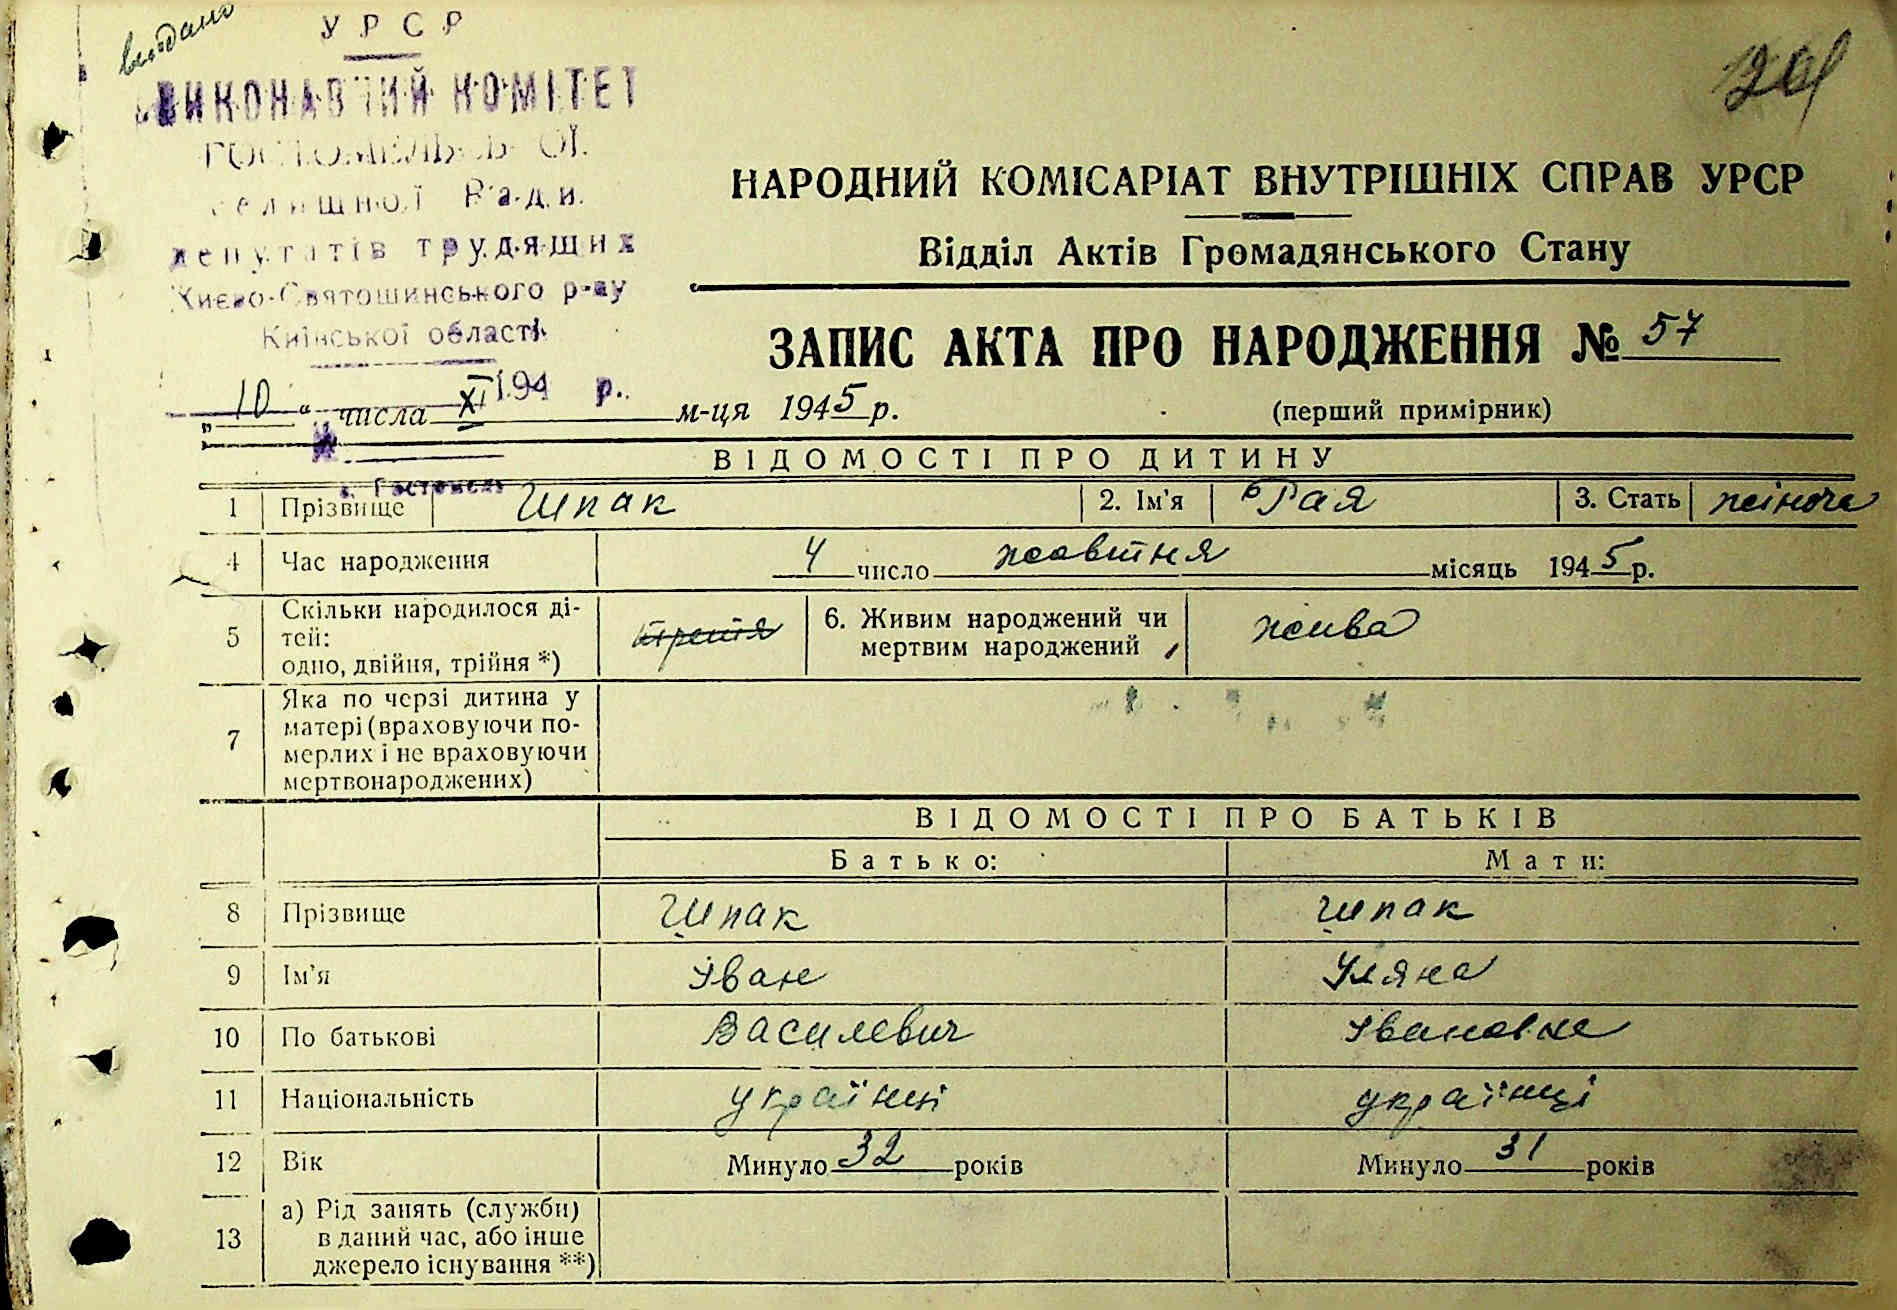 видано
УРСР
ВИКОНАВЧИЙ КОМІТЕТ
ГОСТОМЕЛЬСЬКОЇ
селишної Ради
депутатів трудящих
Києво-Святошинського р-ну
Київської області
194 р.
с. Гостомель
НАРОДНИЙ КОМІСАРІАТ ВНУТРІШНІХ СПРАВ УРСР
Відділ Актів Громадянського Стану
ЗАПИС АКТА ПРО НАРОДЖЕННЯ № 57
„10" числа XI м-ця 1945 р. (перший примірник)
ВІДОМОСТІ ПРО ДИТИНУ
1 Прізвище Шпак 2. Ім'я Рая 3. Стать жіноча
4 Час народження 4 число жовтня місяць 1945 р.
5 Скільки народилося ді-
тей:
одно, двійня, трійня *) третя
6. Живим народжений чи
мертвим народжений жива
7 Яка по черзі дитина у
матері (враховуючи по-
мерлих і не враховуючи
мертвонароджених)
ВІДОМОСТІ ПРО БАТЬКІВ
Батько: Мати:
8 Прізвище Шпак Шпак
9 Ім'я Іван Уляна
10 По батькові Василевич Івановна
11 Національність українці українці
12 Вік Минуло 32 років Минуло 31 років
13 а) Рід занять (служби)
в даний час, або інше
джерело існування **)